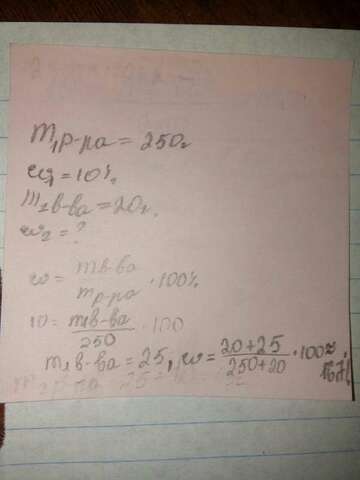 m₁р-ра = 250г
w₁ = 10%
m₂в-ва = 20г.
w₂ = ?
w = mв-ва / mр-ра · 100%
10 = m₁в-ва / 250 · 100
m₁в-ва = 25, w = 20+25 / 250+20 · 100% ≈